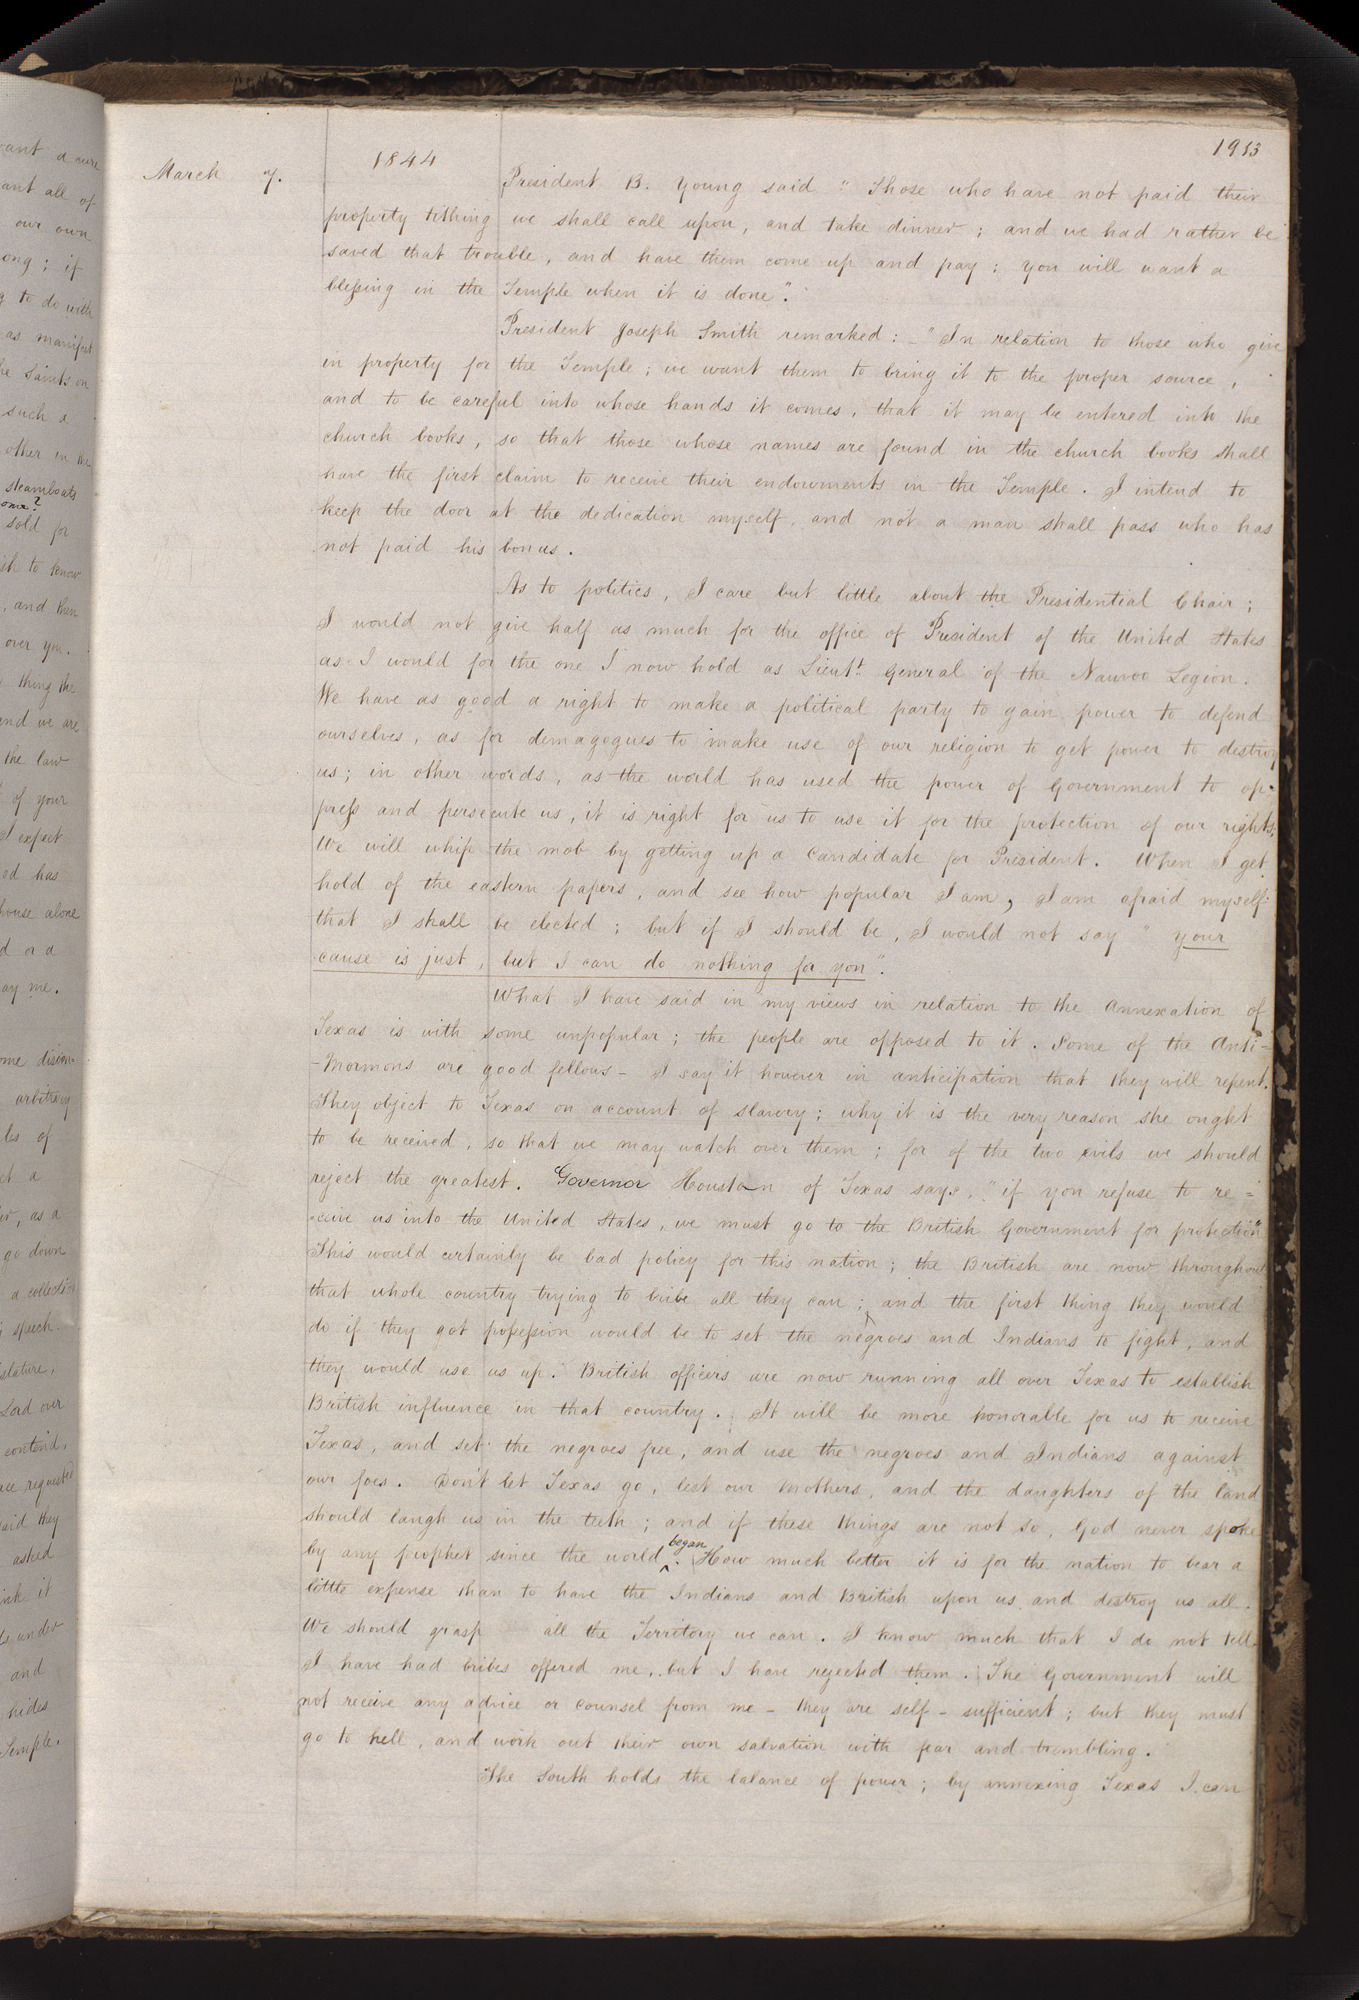 1844
1913
March 7.
President B. Young said "Those who have not paid their
property tithing we shall call upon, and take dinner; and we had rather be
saved that trouble, and have them come up and pay; you will want a
blessing in the Temple when it is done".
President Joseph Smith remarked:—"In relation to those who give
in property for the Temple; we want them to bring it to the proper source,
and to be careful into whose hands it comes, that it may be entered into the
church books, so that those whose names are found in the church books shall
have the first claim to receive their endowments in the Temple. I intend to
keep the door at the dedication myself, and not a man shall pass who has
not paid his bonus.
As to politics, I care but little about the Presidential Chair;
I would not give half as much for the office of President of the United States
as I would for the one I now hold as Lieut. General of the Nauvoo Legion.
We have as good a right to make a political party to gain power to defend
ourselves, as for demagogues to make use of our religion to get power to destroy
us; in other words, as the world has used the power of Government to op-
press and persecute us, it is right for us to use it for the protection of our rights.
We will whip the mob by getting up a candidate for President. When I get
hold of the eastern papers, and see how popular I am, I am afraid myself
that I shall be elected; but if I should be, I would not say "your
cause is just, but I can do nothing for you".
What I have said in my views in relation to the annexation of
Texas is with some unpopular; the people are opposed to it. Some of the Anti-
-Mormons are good fellows— I say it however in anticipation that they will repent.
They object to Texas on account of slavery; why it is the very reason she ought
to be received, so that we may watch over them; for of the two evils we should
reject the greatest. Governor Houston of Texas says, "if you refuse to re=
ceive us into the United States, we must go to the British Government for protection"
This would certainly be bad policy for this nation; the British are now throughout
that whole country trying to bribe all they can; and the first thing they would
do if they got possession would be to set the negroes and Indians to fight, and
they would use us up. British officers are now running all over Texas to establish
British influence in that country. It will be more honorable for us to receive
Texas, and set the negroes free, and use the negroes and Indians against
our foes. Don't let Texas go, lest our mothers, and the daughters of the land
should laugh us in the teeth; and if these things are not so, God never spoke
by any prophet since the world began. How much better it is for the nation to bear a
little expense than to have the Indians and British upon us and destroy us all.
We should grasp all the Territory we can. I know much that I do not tell.
I have had bribes offered me, but I have rejected them. The Government will
not receive any advice or counsel from me — they are self-sufficient; but they must
go to hell, and work out their own salvation with fear and trembling.
The South holds the balance of power; by annexing Texas I can